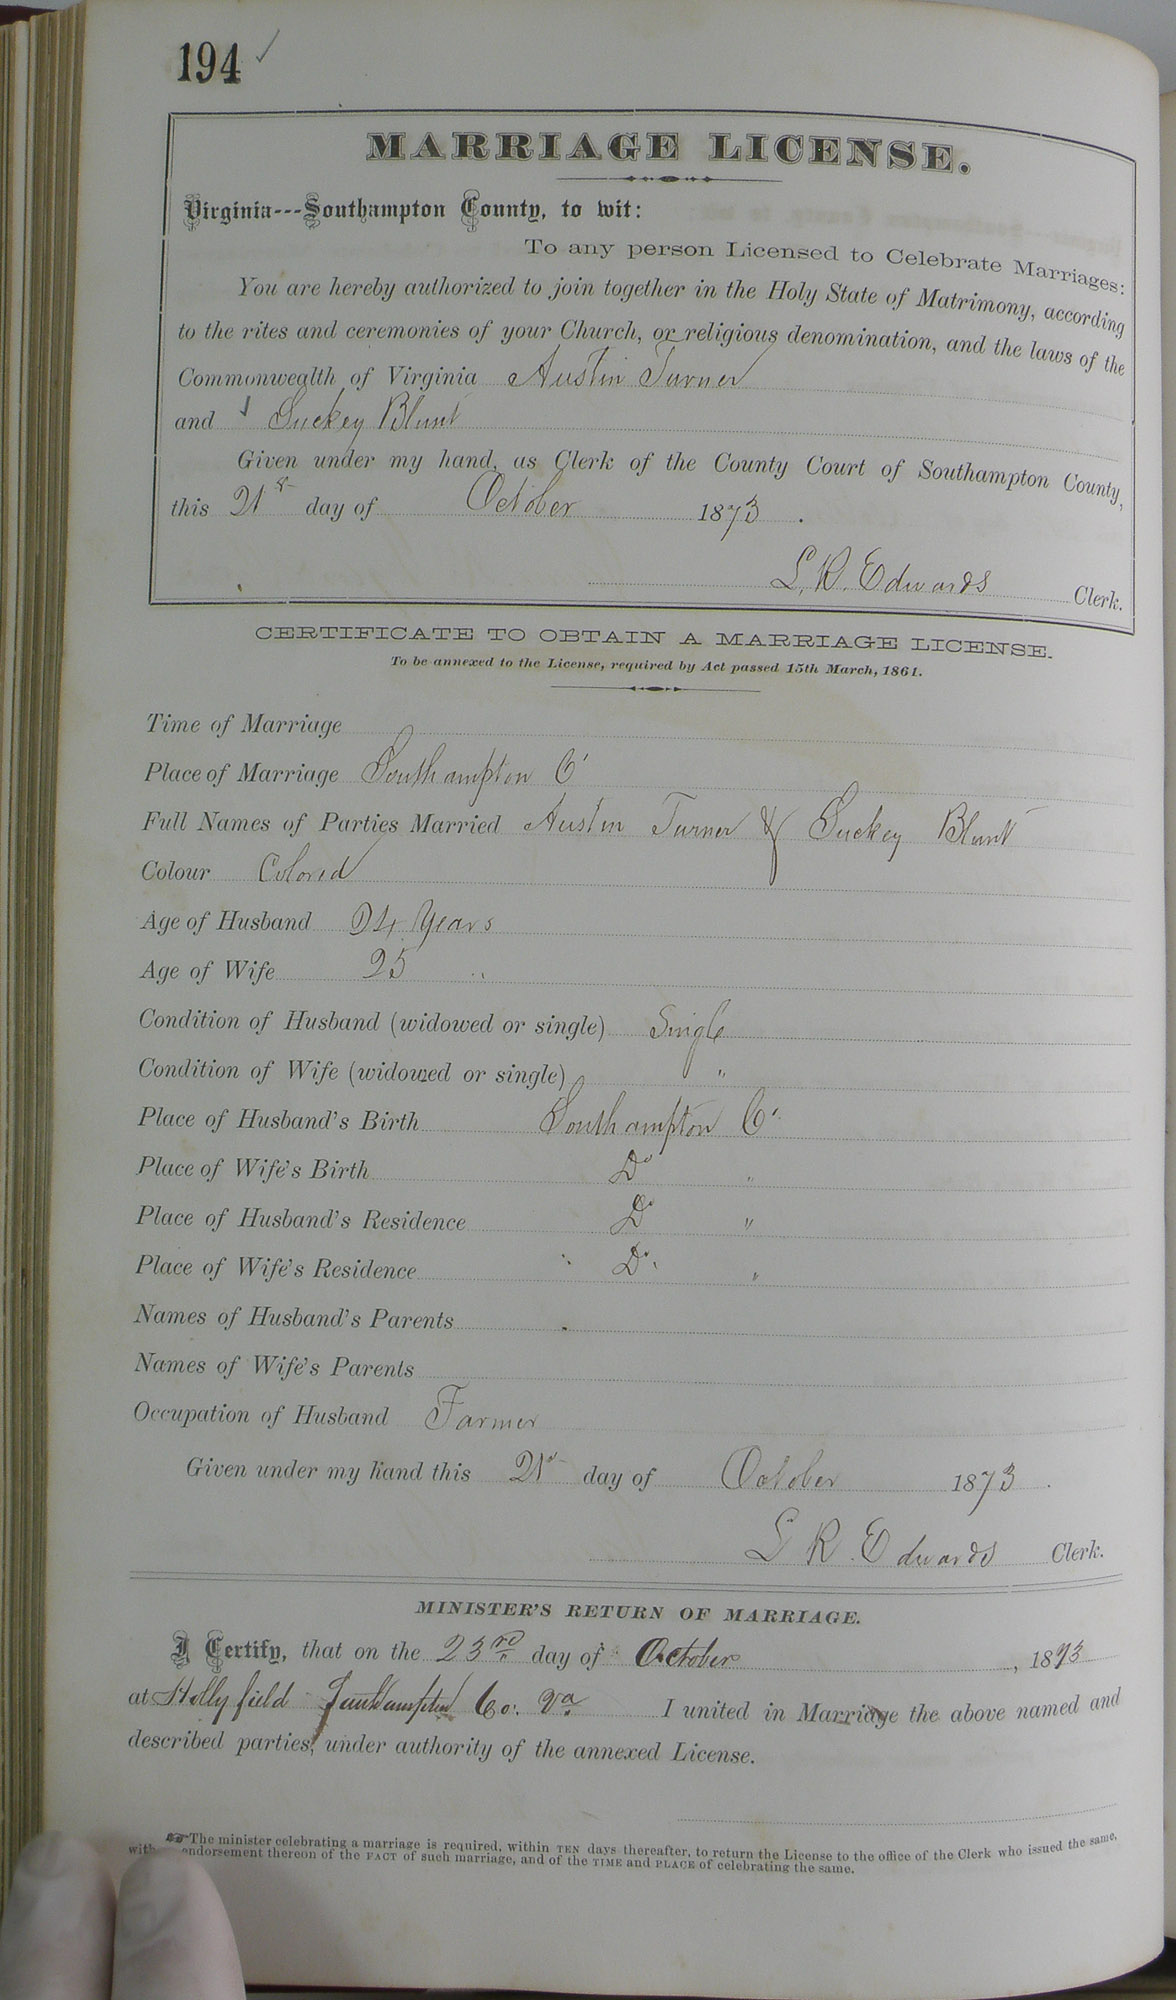 194 ✓
MARRIAGE LICENSE.
Virginia---Southampton County, to wit:
To any person Licensed to Celebrate Marriages:
You are hereby authorized to join together in the Holy State of Matrimony, according
to the rites and ceremonies of your Church, or religious denomination, and the laws of the
Commonwealth of Virginia Austin Turner
and Suckey Blunt
Given under my hand, as Clerk of the County Court of Southampton County,
this 21st day of October 1873.
L. R. Edwards Clerk.
CERTIFICATE TO OBTAIN A MARRIAGE LICENSE.
To be annexed to the License, required by Act passed 15th March, 1861.
Time of Marriage
Place of Marriage Southampton Co
Full Names of Parties Married Austin Turner & Suckey Blunt
Colour Colored
Age of Husband 24 Years
Age of Wife 25 "
Condition of Husband (widowed or single) Single
Condition of Wife (widowed or single) "
Place of Husband's Birth Southampton Co
Place of Wife's Birth Do "
Place of Husband's Residence Do "
Place of Wife's Residence Do "
Names of Husband's Parents
Names of Wife's Parents
Occupation of Husband Farmer
Given under my hand this 21st day of October 1873.
L R. Edwards Clerk.
MINISTER'S RETURN OF MARRIAGE.
I Certify, that on the 23rd day of October, 1873
at Holly field Southampton Co. Va I united in Marriage the above named and
described parties, under authority of the annexed License.
☞ The minister celebrating a marriage is required, within TEN days thereafter, to return the License to the office of the Clerk who issued the same,
with endorsement thereon of the FACT of such marriage, and of the TIME and PLACE of celebrating the same.